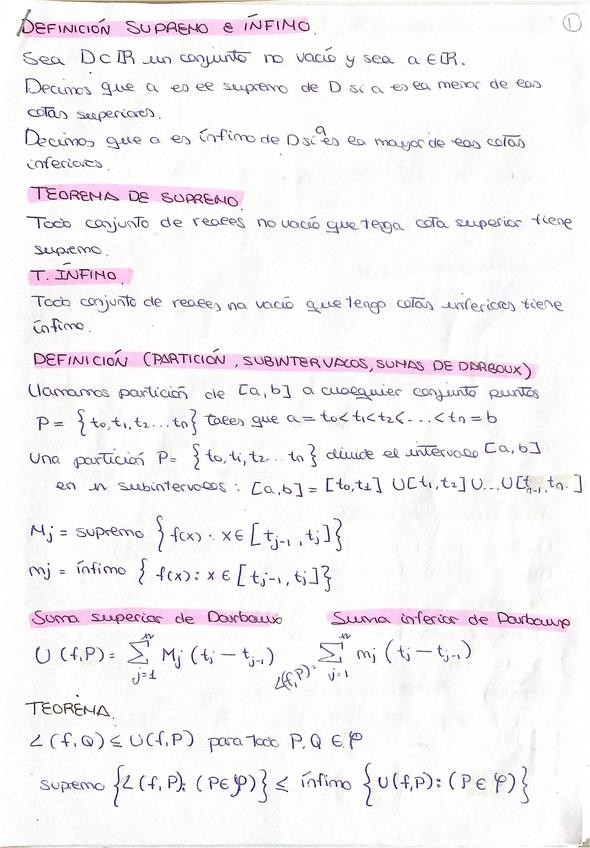 DEFINICIÓN SUPREMO e ÍNFIMO. 1
Sea D⊂ℝ un conjunto no vacío y sea a∈ℝ.
Decimos que a es el supremo de D si a es la menor de las
cotas superiores.
Decimos que a es ínfimo de D si a es la mayor de las cotas
inferiores.
TEOREMA DE SUPREMO
Todo conjunto de reales no vacío que tenga cota superior tiene
supremo.
T. ÍNFIMO
Todo conjunto de reales no vacío que tenga cotas inferiores tiene
ínfimo.
DEFINICIÓN (PARTICIÓN, SUBINTERVALOS, SUMAS DE DARBOUX)
Llamamos partición de [a,b] a cualquier conjunto puntos
P = {t₀,t₁,t₂...tₙ} tales que a=t₀<t₁<t₂<...<tₙ=b
Una partición P= {t₀,t₁,t₂...tₙ} divide el intervalo [a,b]
en n subintervalos: [a,b]=[t₀,t₁] ∪[t₁,t₂]∪...∪[tₙ₋₁,tₙ.]
Mj = supremo {f(x): x∈[tj-1,tj]}
mj = ínfimo {f(x): x∈[tj-1,tj]}
Suma superior de Darboux Suma inferior de Darboux
U(f,P)= ∑ⁿj=1 Mj (tj − tj-1) L(f,P)= ∑ⁿj=1 mj (tj − tj-1)
TEOREMA.
L(f,Q) ≤ U(f,P) para todo P,Q ∈ 𝒫
supremo {L(f,P): (P∈𝒫)} ≤ ínfimo {U(f,P): (P∈𝒫)}